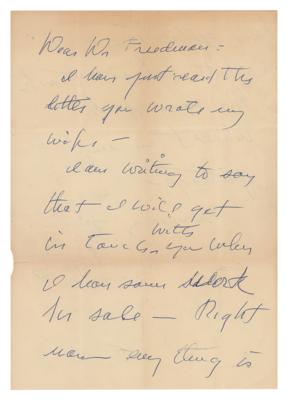 Dear Dr Freedman =
I have just read the
letter you wrote my
wife —
I am writing to say
that I will get
in touch with you when
I have some work
for sale — Right
now everything is